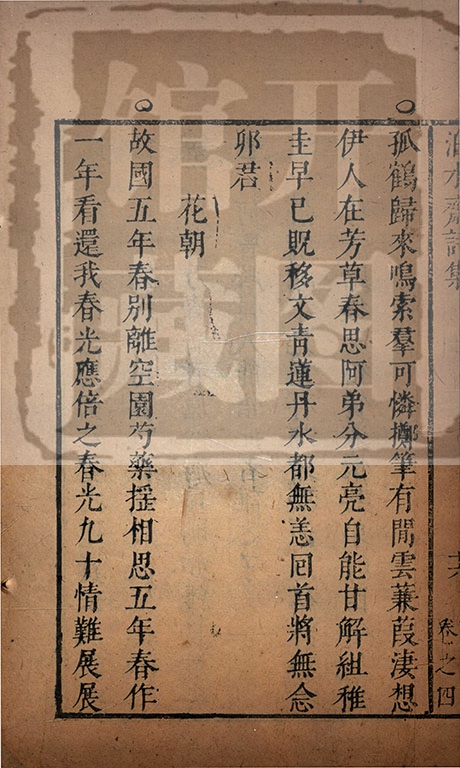 泊水齋詩集
十六
卷之四
孤鶴歸來鳴索羣可憐擲筆有閒雲蒹葭淒想
伊人在芳草春思阿弟分元亮自能甘解組稚
圭早已貺移文青蓮丹水都無恙囘首將無念
卯君
花朝
故國五年春別離空園芍藥揺相思五年春作
一年看還我春光應倍之春光九十情難展展